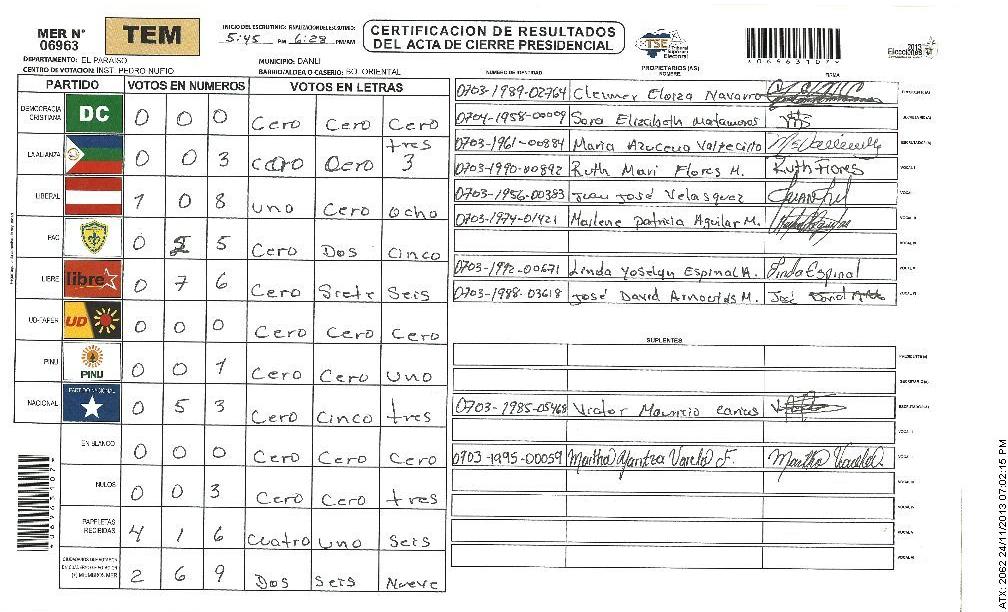 MER N° 06963
TEM
INICIO DEL ESCRUTINIO: FINALIZACION DEL ESCRUTINIO:
5:45 PM 6:28 PM/AM
CERTIFICACION DE RESULTADOS DEL ACTA DE CIERRE PRESIDENCIAL
TSE Tribunal Supremo Electoral
4069631074
2013 Elecciones
DEPARTAMENTO: EL PARAISO
MUNICIPIO: DANLI
CENTRO DE VOTACION: INST. PEDRO NUFIO
BARRIO/ALDEA O CASERIO: BO. ORIENTAL
NUMERO DE IDENTIDAD
PROPIETARIOS (AS) NOMBRE
FIRMA
PARTIDO VOTOS EN NUMEROS VOTOS EN LETRAS
DEMOCRACIA CRISTIANA DC 0 0 0 Cero Cero Cero
LA ALIANZA 0 0 3 cero Cero tres 3
LIBERAL 1 0 8 uno Cero ocho
PAC 0 2 5 Cero Dos Cinco
LIBRE libre 0 7 6 Cero Siete Seis
UD-FAPER UD 0 0 0 Cero Cero Cero
PINU PINU 0 0 1 Cero Cero Uno
NACIONAL PARTIDO NACIONAL 0 5 3 Cero Cinco tres
EN BLANCO 0 0 0 Cero Cero Cero
NULOS 0 0 3 Cero Cero tres
PAPELETAS RECIBIDAS 4 1 6 Cuatro Uno Seis
2 6 9 Dos Seis Nueve
0703-1989-02764 Clermer Eloiza Navarro
0704-1958-00009 Sara Elizabeth Matamoros
0703-1961-00884 Maria Azucena Valtecillo
0703-1990-00892 Ruth Mari Flores M. Ruth Flores
0703-1956-00383 Juan José Velasquez
0703-1974-01421 Marlene Patricia Aguilar M.
0703-1992-00671 Linda Yoselyn Espinal A. Linda Espinal
0703-1988-03618 José David M. José David
SUPLENTES
0703-1985-05468 Victor Mauricio
0703-1995-00059 Martha Yaritza Varela F. Martha Varela
4069631074
ATX: 2062 24/11/2013 07:02:15 PM